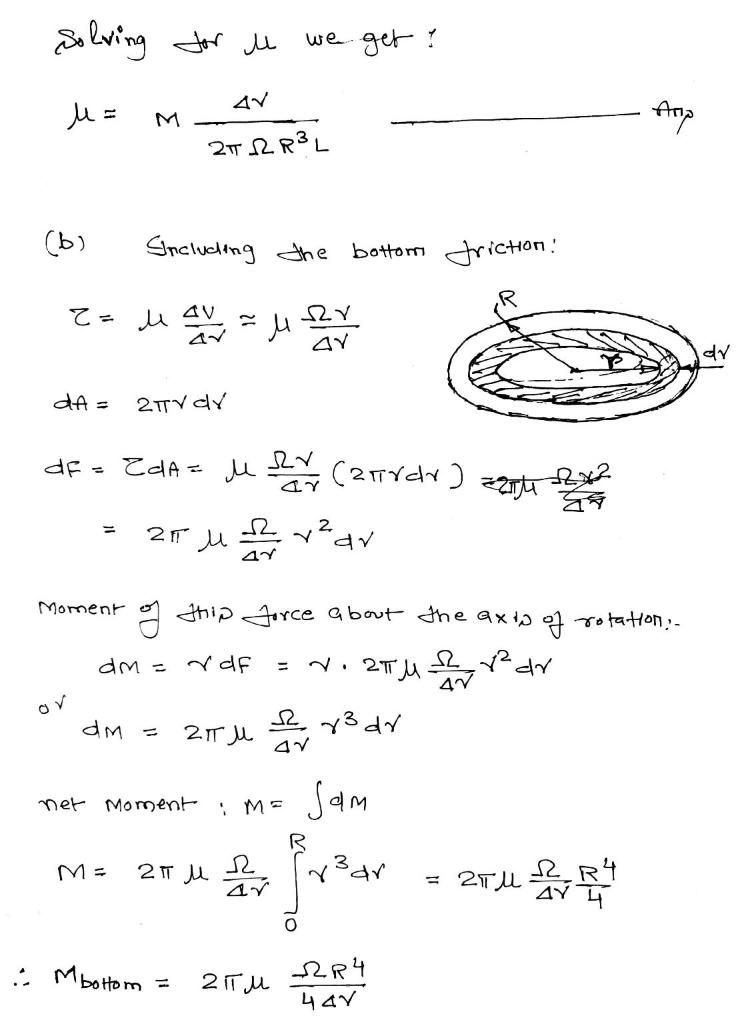 Solving for μ we get :
μ = M Δr / 2π Ω R³ L ——— Ans
(b) Including the bottom friction:
τ = μ ΔV/Δr ≈ μ Ωr/Δr
R
r
dr
dA = 2πr dr
dF = τdA = μ Ωr/Δr (2πrdr) = 2πμ Ωr²/Δr
= 2π μ Ω/Δr r² dr
Moment of this force about the axis of rotation:-
dM = r dF = r · 2π μ Ω/Δr r² dr
or
dM = 2π μ Ω/Δr r³ dr
net Moment ; M = ∫dM
M = 2π μ Ω/Δr ∫₀ᴿ r³ dr = 2π μ Ω/Δr R⁴/4
∴ Mbottom = 2π μ ΩR⁴/4Δr